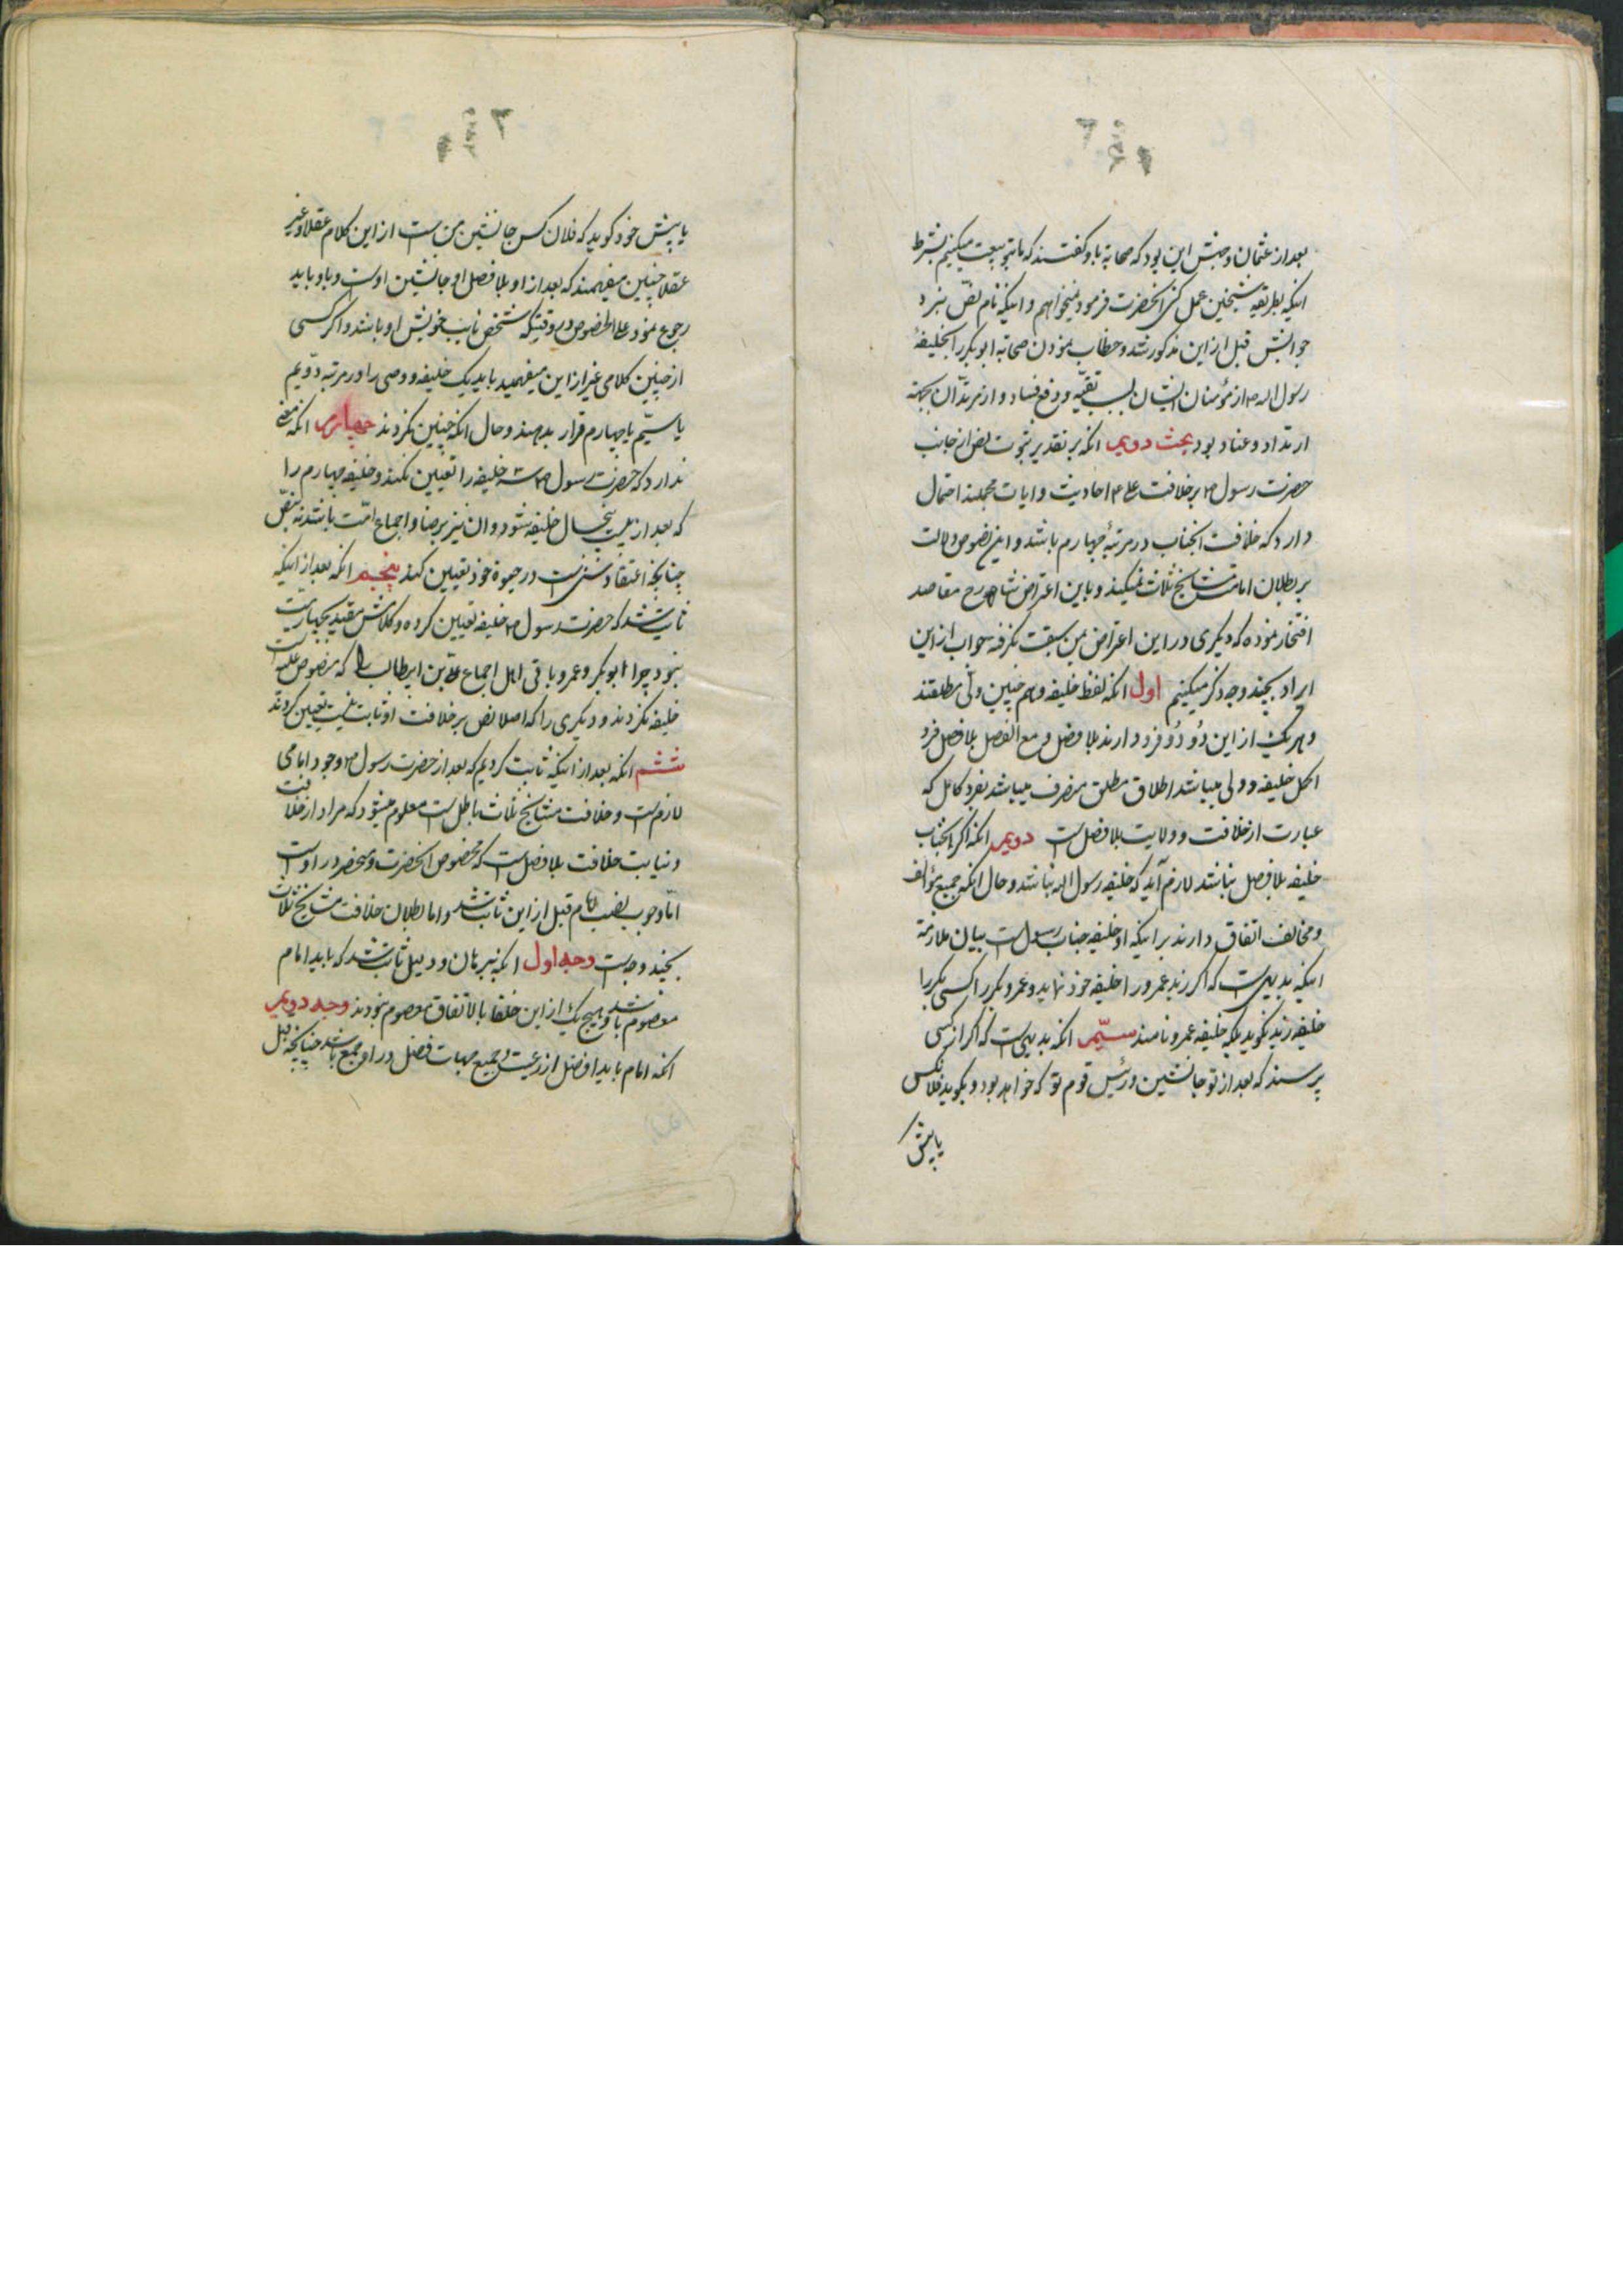 بعد از عثمان وجهش این بود که صحابه باو گفتند که ما بتو بیعت میکنیم بشرط
اینکه بطریقه شیخین عمل کنی انحضرت فرمود نمیخواهم و اینکه نام نص نبرد
جوابش قبل از این مذکور شد و خطاب نمودن صحابه ابو بکر را بخلیفهٔ
رسول الله ص از مؤمنان ایشان بسبب تقیه و دفع فساد و از مرتدان بجهة
ارتداد و عناد بود بحث دویم انکه بر تقدیر ثبوت نص از جانب
حضرت رسول ص بر خلافت علی ع احادیث و ایات مجملند احتمال
دارد که خلافت انجناب در مرتبهٔ چهارم باشد و این نصوص دلالت
بر بطلان امامت مشایخ ثلاث نمیکند و باین اعتراض شارح مقاصد
افتخار نموده که دیگری در این اعتراض بمن سبقت نگرفته جواب از این
ایراد بچند وجه ذکر میکنیم اول انکه لفظ خلیفه و هم چنین ولی مطلقند
و هر یک از این دو دو فرد دارند بلا فصل و مع الفصل بلا فصل فرد
اکمل خلیفه و ولی میباشد اطلاق مطلق منصرف میباشد بفرد کامل که
عبارت از خلافت و ولایت بلا فصل است دویم انکه اگر انجناب
خلیفه بلا فصل نباشد لازم آید که خلیفه رسول الله نباشد و حال انکه جمیع مؤالف
و مخالف اتفاق دارند بر اینکه او خلیفه جناب رسول است بیان ملازمة
اینکه بدیهی است که اگر زید عمرو را خلیفه خود نماید و عمرو بکر را کسی بکر را
خلیفه زید نگوید بلکه خلیفه عمرو نامند سیّم انکه بدیهی است که اگر از کسی
پرسند که بعد از تو جانشین و رئیس قوم تو که خواهد بود و بگوید فلانکس
یا پیش
یا پیش خود گوید که فلان کس جانشین من است از این کلام عقلا و غیر
عقلا چنین میفهمند که بعد از او بلا فصل او جانشین اوست و باو باید
رجوع نمود علی الخصوص در وقتیکه شخص نایب خویش او باشد و اگر کسی
از چنین کلامی غیر از این میفهمید باید یک خلیفه و وصی را در مرتبه دویم
یا سیّم یا چهارم قرار بدهند و حال انکه چنین نکردند چهارم انکه معنی
ندارد که حضرت رسول ص سه خلیفه را تعیین نکند و خلیفه چهارم را
که بعد از بیست پنجسال خلیفه شود و ان نیز برضا و اجماع امّت باشد نه بنصّ
چنانچه اعتقاد سنی است در حیوة خود تعیین کند پنجم انکه بعد از اینکه
ثابت شد که حضرت رسول ص خلیفه تعیین کرده و کلامش مقید بچهارمیّت
نبود چرا ابو بکر و عمر و باقی اهل اجماع علی بن ابیطالب را که منصوص علیه است
خلیفه نکردند و دیگری را که اصلا نص بر خلافت او ثابت نیست تعیین کردند
ششم انکه بعد از اینکه ثابت کردیم که بعد از حضرت رسول ص وجود امامی
لازم است و خلافت مشایخ ثلاث باطل است معلوم میشود که مراد از خلافت
و نیابت خلافت بلا فصل است که مخصوص انحضرت و منحصر در اوست
امّا وجوب نصب امام قبل از این ثابت شد و اما بطلان خلافت مشایخ ثلاث
بچند وجه است وجه اول انکه ببرهان و دلیل ثابت شد که باید امام
معصوم باشد و هیچ یک از این خلفا بالاتفاق معصوم نبودند وجه دویم
انکه امام باید افضل از رعیت و جمیع جهات فضل در او جمع باشد چنانچه قبل